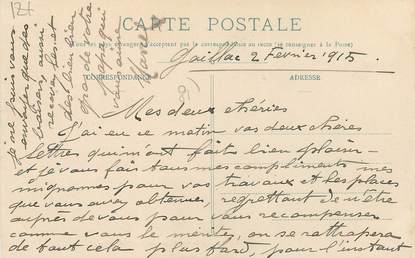 CARTE POSTALE
Tous les pays étrangers n'acceptent pas la correspondance au recto (se renseigner à la Poste)
CORRESPONDANCE
ADRESSE
Gaillac 2 Février 1915
Mes deux chéries
J'ai eu ce matin vos deux chères
lettres qui m'ont faits bien plaisir
et je vous fait tous mes compliments mes
mignonnes pour vos travaux et les places
que vous avez obtenues, regrettant de n'être
auprès de vous pour vous recompenser
comme vous le méritez, on se rattrapera
de tout cela plus tard, pour l'instant
je ne puis vous
envoyer que des
baisers, aussi
recevez, et
des bien bien
gros de votre
papa qui
vous aime